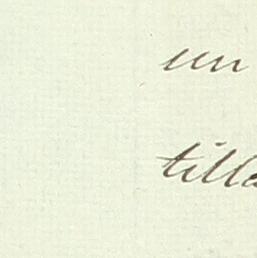 un
tilla